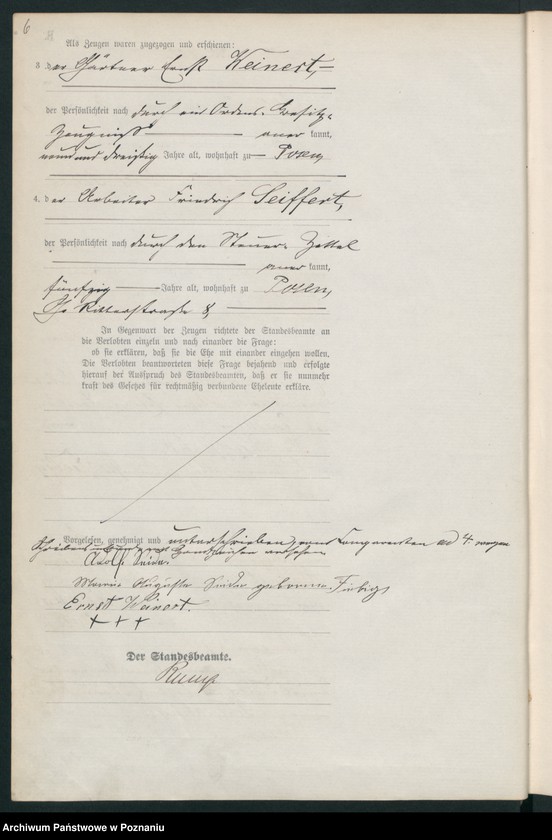 6
Als Zeugen waren zugezogen und erschienen:
3. der Gärtner Ernst Weinert,
der Persönlichkeit nach durch ein Ordens-Besitz-
Zeugniß anerkannt,
neunund dreißig Jahre alt, wohnhaft zu Posen,
4. der Arbeiter Friedrich Seiffert,
der Persönlichkeit nach durch den Steuer-Zettel
anerkannt,
fünfzig Jahre alt, wohnhaft zu Posen,
Ritterstraße 8,
In Gegenwart der Zeugen richtete der Standesbeamte an
die Verlobten einzeln und nach einander die Frage:
ob sie erklären, daß sie die Ehe mit einander eingehen wollen.
Die Verlobten beantworteten diese Frage bejahend und erfolgte
hierauf der Ausspruch des Standesbeamten, daß er sie nunmehr
kraft des Gesetzes für rechtmäßig verbundene Eheleute erkläre.
Vorgelesen, genehmigt und unterschrieben, vom Comparenten ad 4. wegen
Schreibens mit Handzeichen versehen
Adolf
Auguste geborene Fiebig
Ernst Weinert.
+ + +
Der Standesbeamte.
Rump
Archiwum Państwowe w Poznaniu